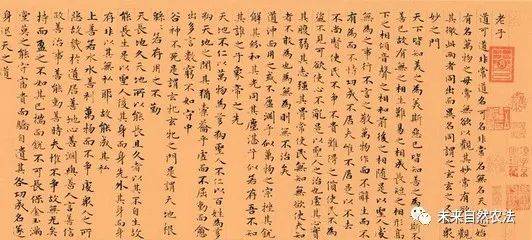 老子
道可道非常道名可名非常名無名天地之始
有名萬物之母常無欲以觀其妙常有欲以觀
其徼此兩者同出而異名同謂之玄玄之又玄衆
妙之門
天下皆知美之為美斯惡已皆知善之為善斯不
善已故有無之相生難易之相成長短之相形高
下之相傾音聲之相和前後之相隨是以聖人處
無為之事行不言之教萬物作而不辭生而不
有為而不恃功成不居夫惟不居是以不去
不尚賢使民不爭不貴難得之貨使民不為
盜不見可欲使心不亂是以聖人之治虛其心實
其腹弱其志強其骨常使民無知無欲使夫知
者不敢為也為無為則無不治矣
道沖而用之或不盈淵乎似萬物之宗挫其銳
解其紛和其光同其塵湛兮似若存吾不知
其誰之子象帝之先
天地不仁以萬物為芻狗聖人不仁以百姓為芻
狗天地之間其猶橐籥乎虛而不屈動而愈
出多言數窮不如守中
谷神不死是謂玄牝玄牝之門是謂天地根
綿綿若存用之不勤
天長地久天地所以能長且久者以其不自生故
能長生是以聖人後其身而身先外其身而身
存非以其無私耶故能成其私
上善若水水善利萬物而不爭處衆人之所
惡故幾於道居善地心善淵與善人言善信
政善治事善能動善時夫惟不爭故無尤矣
持而盈之不如其已揣而銳之不可長保金玉滿
堂莫之能守富貴而驕自遺其咎功成名遂
身退天之道
未来自然农法